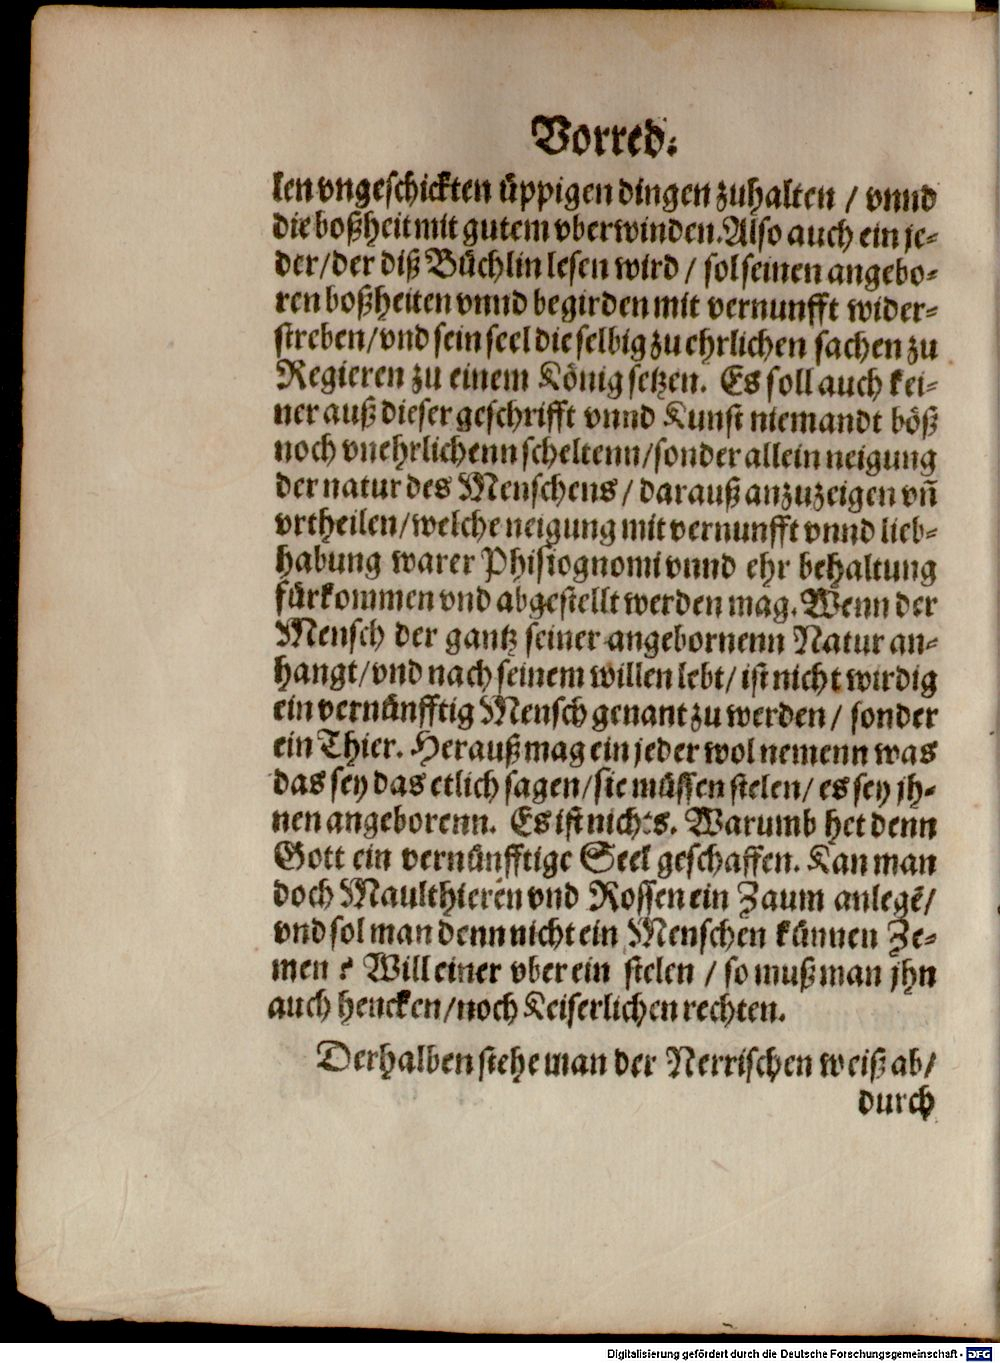 Vorred.
len vngeschickten üppigen dingen zuhalten / vnnd
die boßheit mit gutem vberwinden. Also auch ein je-
der/der diß Büchlin lesen wird / sol seinen angebo-
ren boßheiten vnnd begirden mit vernunfft wider-
streben/vnd sein seel die selbig zu ehrlichen sachen zu
Regieren zu einem König setzen. Es soll auch kei-
ner auß dieser geschrifft vnnd Kunst niemandt böß
noch vnehrlichenn scheltenn/sonder allein neigung
der natur des Menschens / darauß anzuzeigen vñ
vrtheilen/welche neigung mit vernunfft vnnd lieb-
habung warer Phisiognomi vnnd ehr behaltung
fürkommen vnd abgestellt werden mag. Wenn der
Mensch der gantz seiner angebornenn Natur an-
hangt/vnd nach seinem willen lebt/ ist nicht wirdig
ein vernünfftig Mensch genant zu werden / sonder
ein Thier. Herauß mag ein jeder wol nemenn was
das sey das etlich sagen/sie müssen stelen/ es sey jh-
nen angeborenn. Es ist nichts. Warumb het denn
Gott ein vernünfftige Seel geschaffen. Kan man
doch Maulthieren vnd Rossen ein Zaum anlegē/
vnd sol man denn nicht ein Menschen künnen Ze-
men ? Will einer vber ein stelen / so muß man jhn
auch hencken/noch Keiserlichen rechten.
Derhalben stehe man der Nerrischen weiß ab/
durch
Digitalisierung gefördert durch die Deutsche Forschungsgemeinschaft - DFG